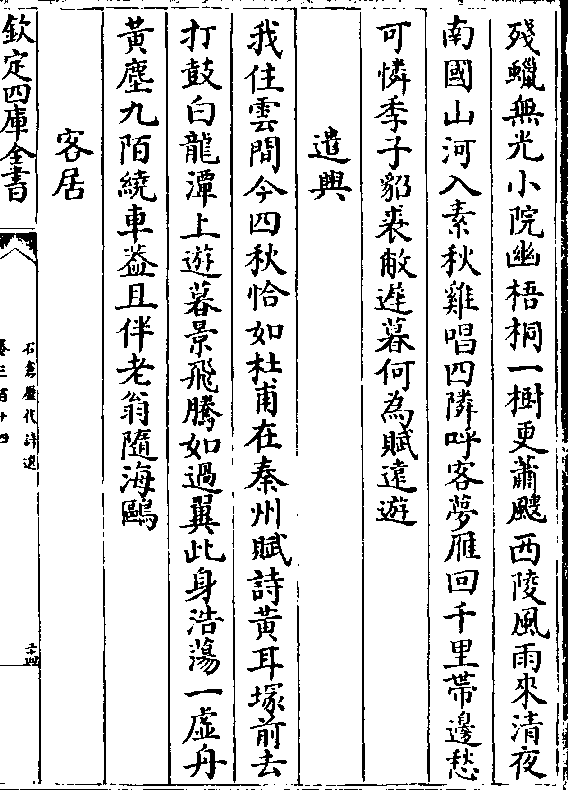 殘蠟無光小院幽梧桐一樹更蕭颼西陵風雨來清夜
南國山河入素秋雞唱四隣呼客夢雁回千里帶邊愁
可憐季子貂裘敝遲暮何為賦遠遊
遣興
我住雲間今四秋恰如杜甫在秦州賦詩黃耳塚前去
打鼓白龍潭上遊暮景飛騰如過翼此身浩蕩一虛舟
黃塵九陌繞車葢且伴老翁隨海鷗
客居
欽定四庫全書
石倉歷代詩選
卷三百十四
二十四